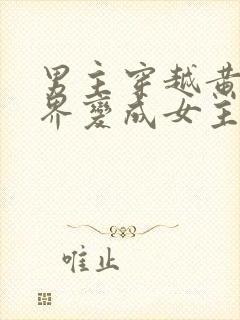 男主穿越黄
界变成女主
唯止